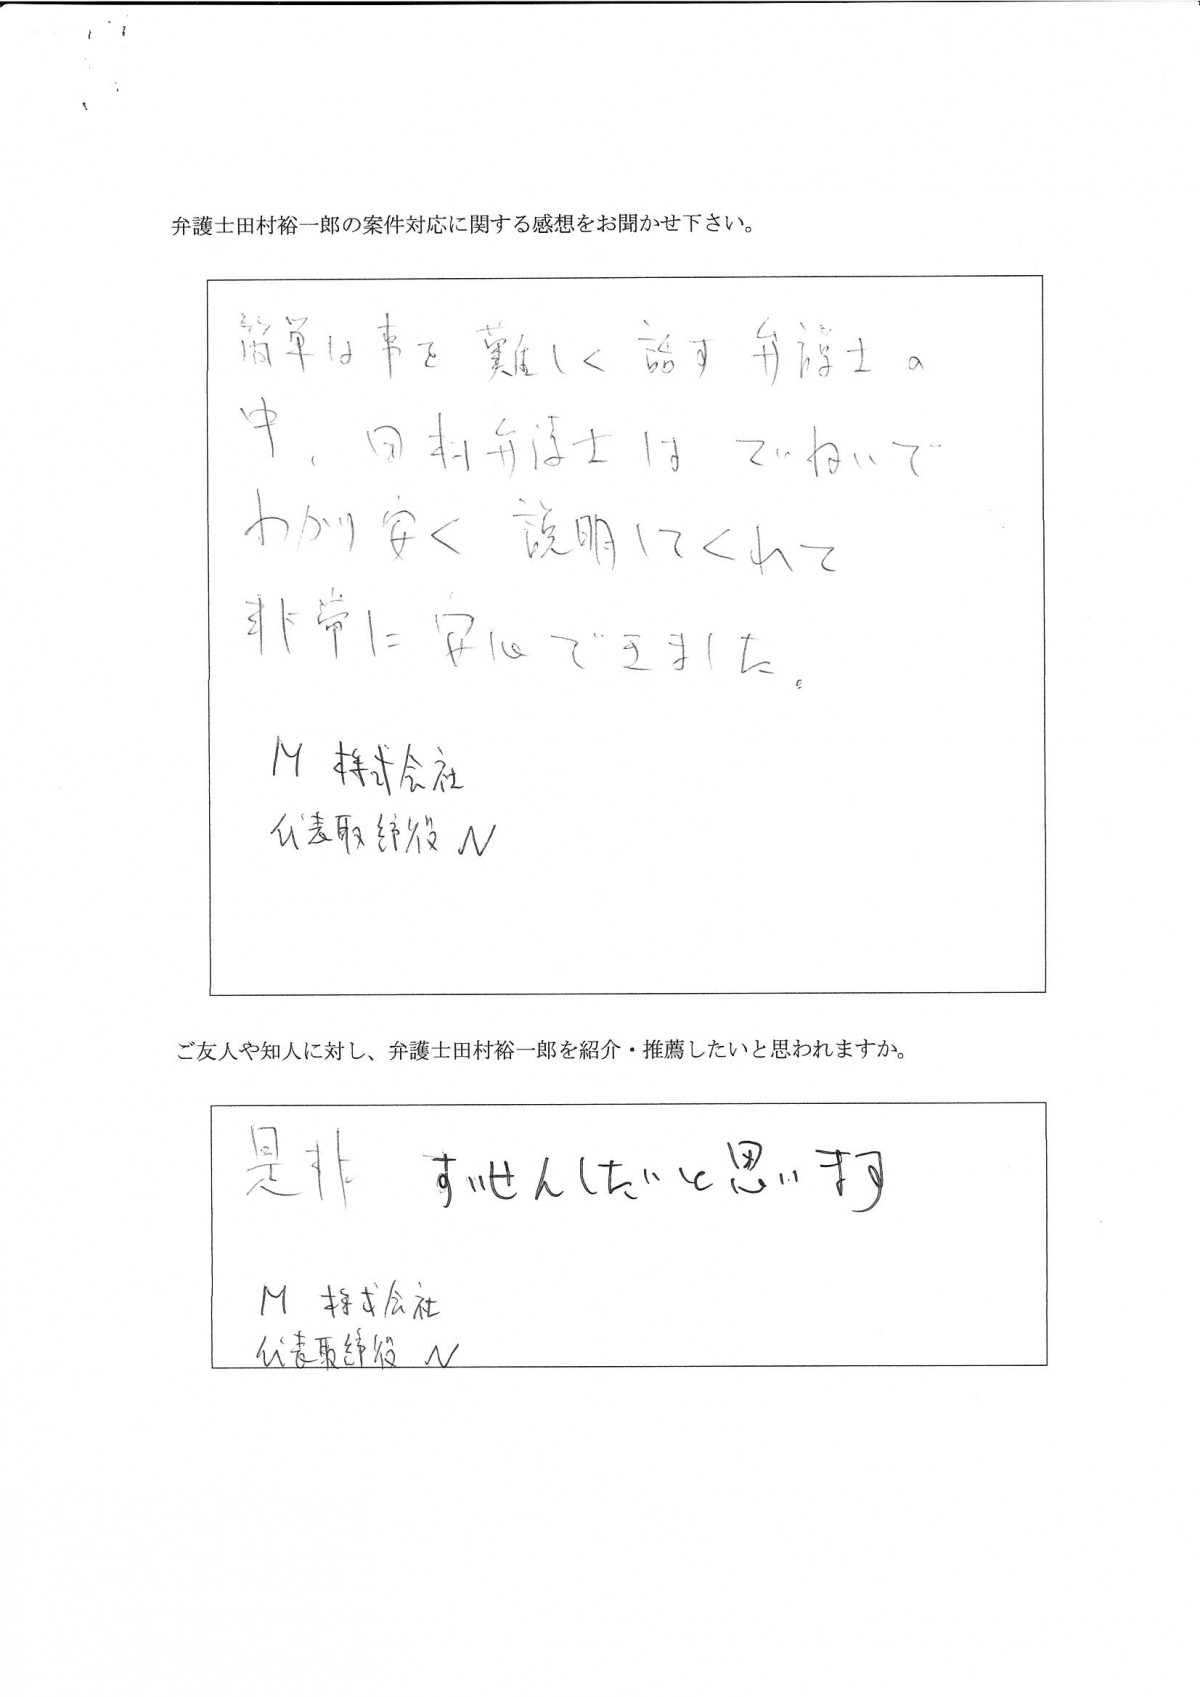 弁護士田村裕一郎の案件対応に関する感想をお聞かせ下さい。
簡単な事を難しく話す弁護士の
中、田村弁護士はていねいで
わかり安く説明してくれて
非常に安心できました。
M 株式会社
代表取締役 N
ご友人や知人に対し、弁護士田村裕一郎を紹介・推薦したいと思われますか。
是非 すいせんしたいと思います
M 株式会社
代表取締役 N